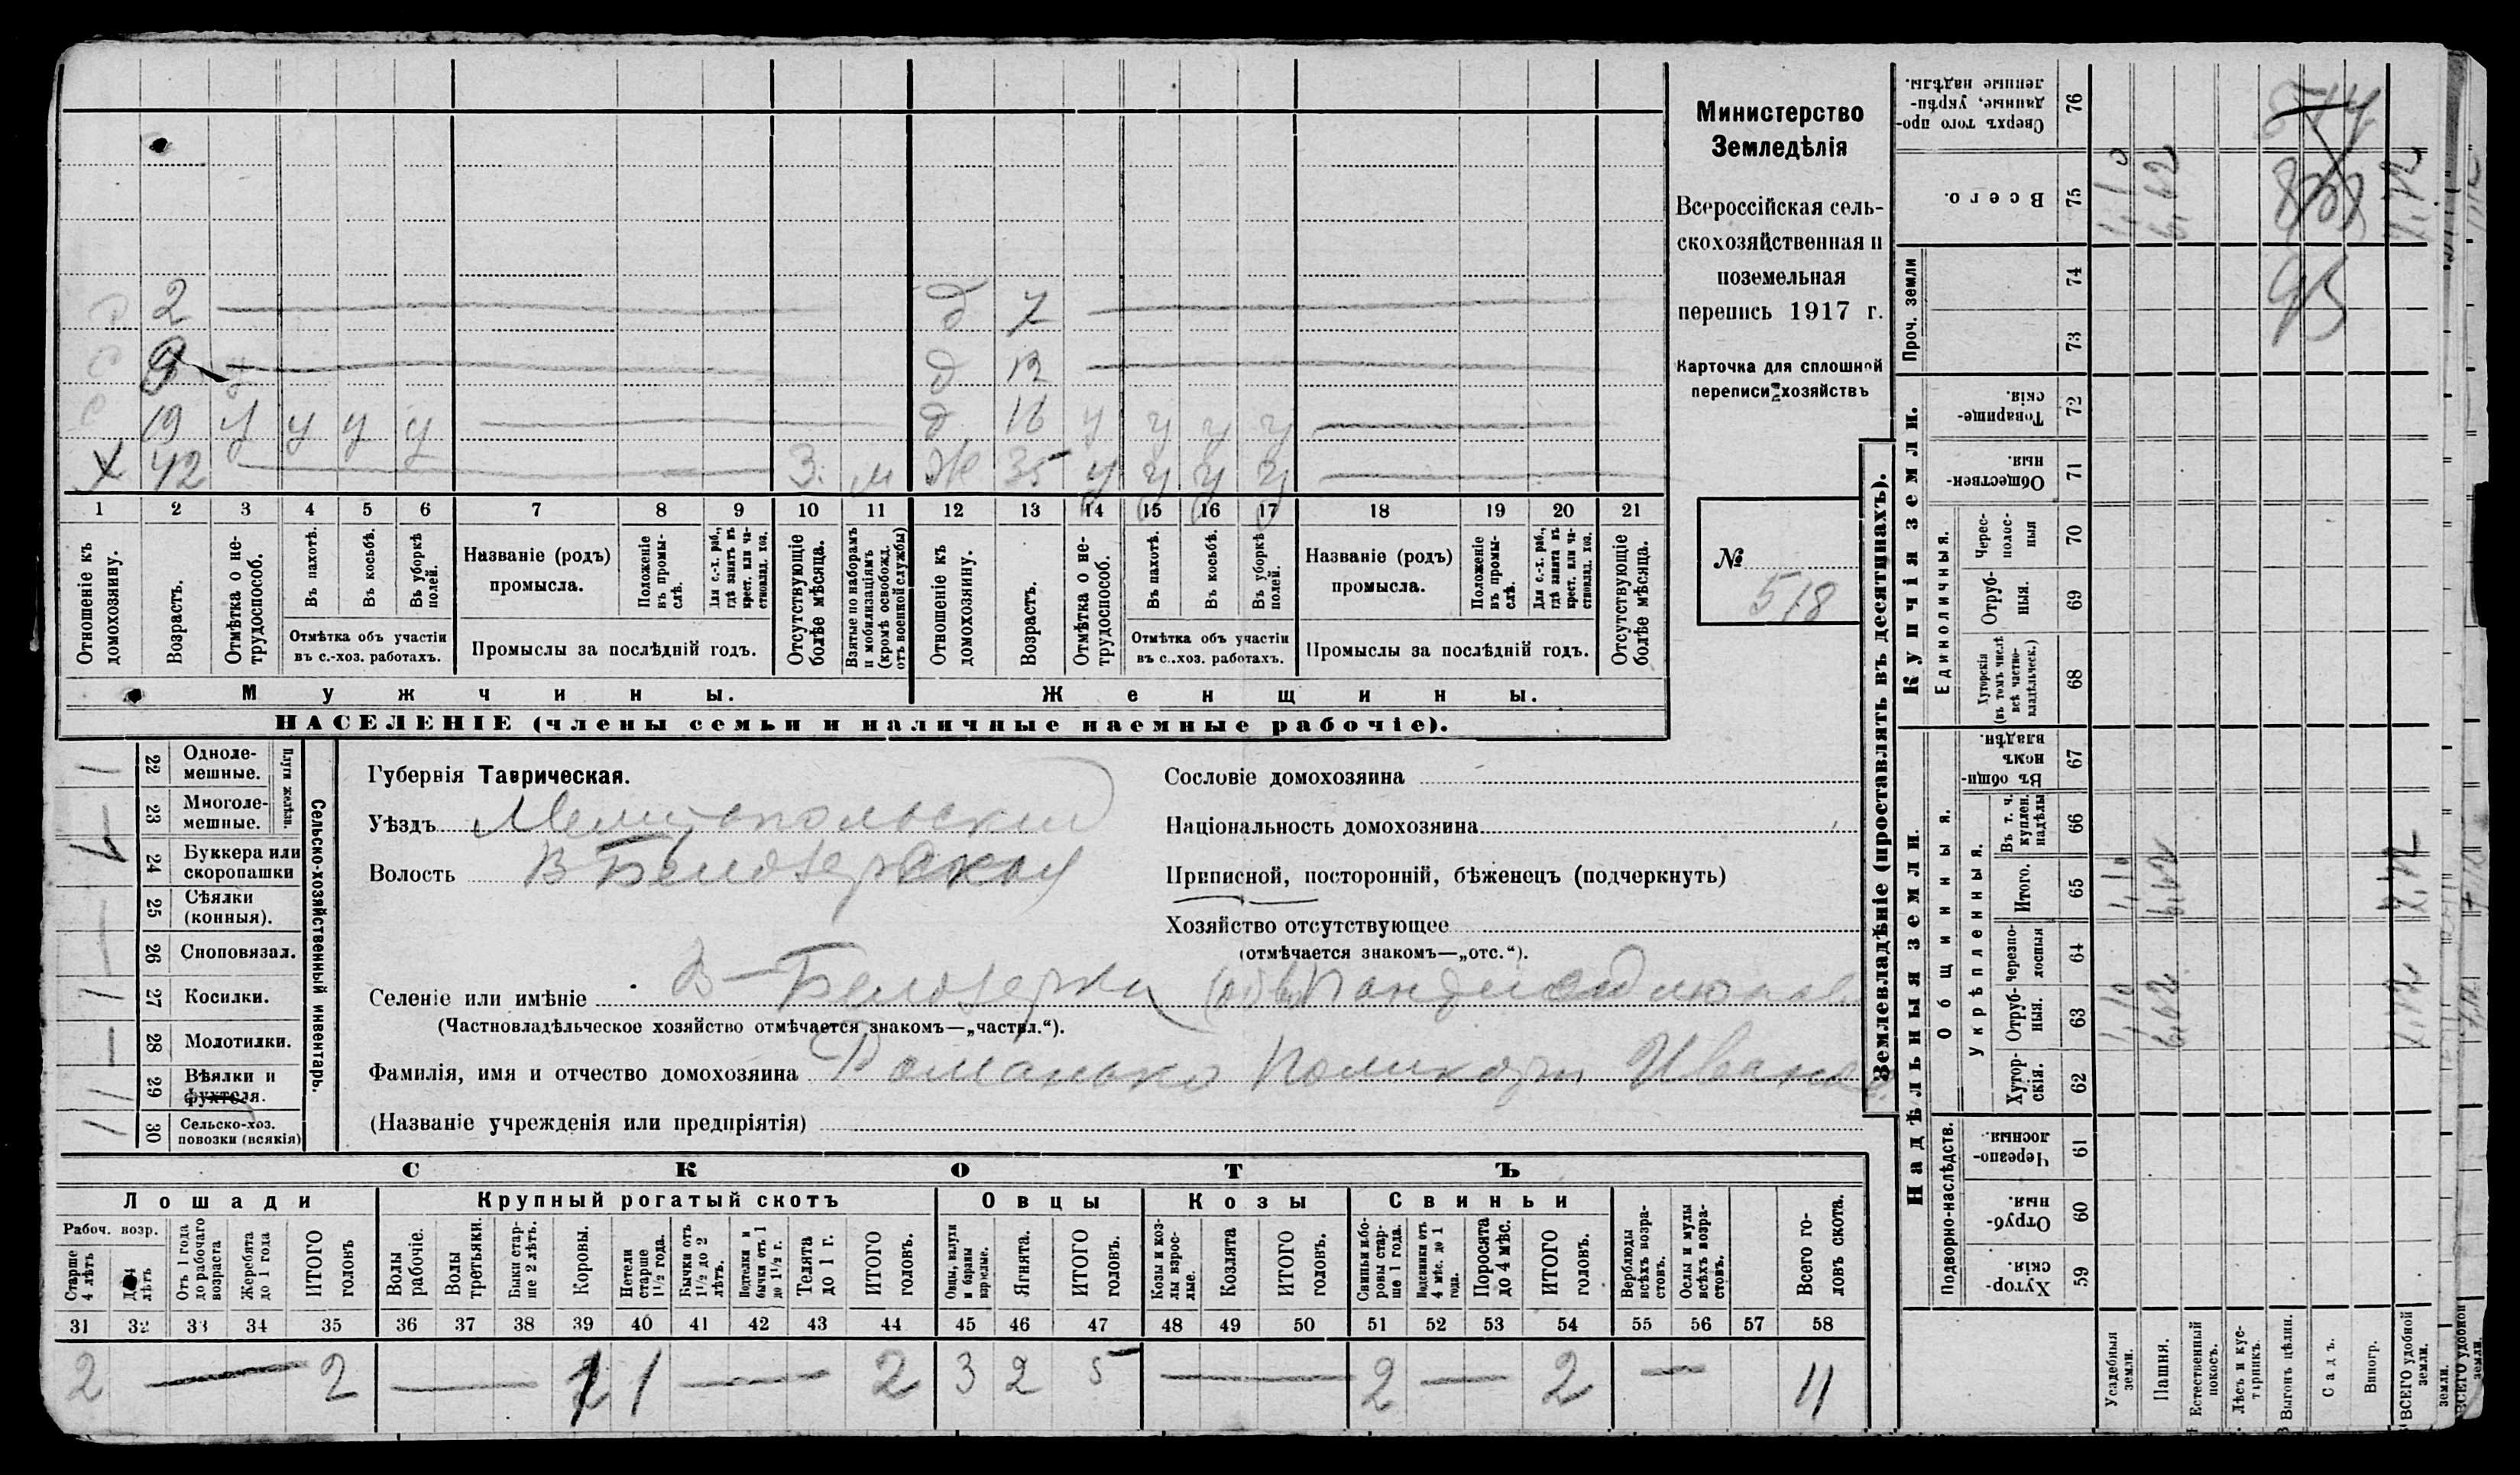 2 — д 7 —
9 — д 12 —
с 19 у у у у — д 16 у у у у —
х 42 — З. м ж 35 у у у у —
1 2 3 4 5 6 7 8 9 10 11 12 13 14 15 16 17 18 19 20 21
Отношеніе къ домохозяину.
Возрастъ.
Отмѣтка о не-трудоспособ.
Въ пахотѣ.
Въ косьбѣ.
Въ уборкѣ полей.
Отмѣтка объ участіи
въ с.-хоз. работахъ.
Названіе (родъ)
промысла.
Положеніе въ промы-слѣ.
Для с.-х. раб., гдѣ занятъ въ крест. или ча-стновлад. хоз.
Промыслы за послѣдній годъ.
Отсутствующіе болѣе мѣсяца.
Взятые по наборамъ и мобилизаціямъ (кромѣ освобожд. отъ военной службы)
Отношеніе къ домохозяину.
Возрастъ.
Отмѣтка о не-трудоспособ.
Въ пахотѣ.
Въ косьбѣ.
Въ уборкѣ полей.
Отмѣтка объ участіи
въ с.-хоз. работахъ.
Названіе (родъ)
промысла.
Положеніе въ промы-слѣ.
Для с.-х. раб., гдѣ занята въ крест. или ча-стновлад. хоз.
Промыслы за послѣдній годъ.
Отсутствующіе болѣе мѣсяца.
Мужчины. Женщины.
НАСЕЛЕНІЕ (члены семьи и наличные наемные рабочіе).
Министерство
Земледѣлія
Всероссійская сель-
скохозяйственная и
поземельная
перепись 1917 г.
Карточка для сплошной
переписи хозяйствъ
№
518
22 Одноле-мешные.
23 Многоле-мешные.
Плуги желѣзн.
24 Буккера или скоропашки
25 Сѣялки (конныя).
26 Сноповязал.
27 Косилки.
28 Молотилки.
29 Вѣялки и фухтеля.
30 Сельско-хоз. повозки (всякія)
Сельско-хозяйственный инвентарь.
Губернія Таврическая.
Уѣздъ Мелитопольский
Волость В Белозерская
Сословіе домохозяина
Національность домохозяина
Приписной, посторонній, бѣженецъ (подчеркнуть)
Хозяйство отсутствующее
(отмѣчается знакомъ—„отс.“).
Селеніе или имѣніе В-Белозерка
(Частновладѣльческое хозяйство отмѣчается знакомъ—„частвл.“).
Фамилія, имя и отчество домохозяина Романько Поликарп Иванов
(Названіе учрежденія или предпріятія)
СКОТЪ
Лошади Крупный рогатый скотъ Овцы Козы Свиньи
Рабоч. возр.
Старше 4 лѣтъ
До 4 лѣтъ
Отъ 1 года до рабочаго возраста
Жеребята до 1 года
ИТОГО головъ
Волы рабочіе.
Волы третьяки.
Быки стар-ше 2 лѣтъ.
Коровы.
Нетели старше 1½ года.
Бычки отъ 1½ до 2 лѣтъ.
Подтелки и бычки отъ 1 до 1½ г.
Телята до 1 г.
ИТОГО головъ.
Овцы, валухи и бараны взрослые.
Ягнята.
ИТОГО головъ.
Козы и коз-лы взрос-лые.
Козлята
ИТОГО головъ.
Свиньи и бо-ровы стар-ше 1 года.
Подсвинки отъ 4 мѣс. до 1 года.
Поросята до 4 мѣс.
ИТОГО головъ.
Верблюды всѣхъ возра-стовъ.
Ослы и мулы всѣхъ возра-стовъ.
Всего го-ловъ скота.
31 32 33 34 35 36 37 38 39 40 41 42 43 44 45 46 47 48 49 50 51 52 53 54 55 56 57 58
2 — 2 — 1 1 — 2 3 2 5 — 2 — 2 — 11
Землевладѣніе (проставлять въ десятинахъ).
Надѣльныя земли.
Купчія земли.
Проч. земли
Подворно-наслѣдств.
Общинныя.
Укрѣпленныя.
Единоличныя.
59 Хутор-скія.
60 Отруб-ныя.
61 Черезпо-лосныя.
62 Хутор-скія.
63 Отруб-ныя.
64 Черезпо-лосныя
65 Итого.
66 Въ т. ч. куплен. надѣлы
67 Въ общи-номъ владѣн.
68 Хуторскія (въ томъ числѣ всѣ частно-владѣльческ.)
69 Отруб-ныя.
70 Черес-полос-ныя
71 Обществен-ныя.
72 Товарище-скія.
73
74
75 Всего.
76 Сверхъ того про-данные, укрѣп-ленные надѣлы.
Усадебныя земли.
1,10 1,10 1,10
Пашня.
6,02 6,02 6,02
Естественный покосъ.
Лѣсъ и кус-тарникъ.
Выгонъ цѣлин.
Садъ.
Виногр.
ВСЕГО удобной земли.
7,12 7,12 7,12
ВСЕГО удобной земли.